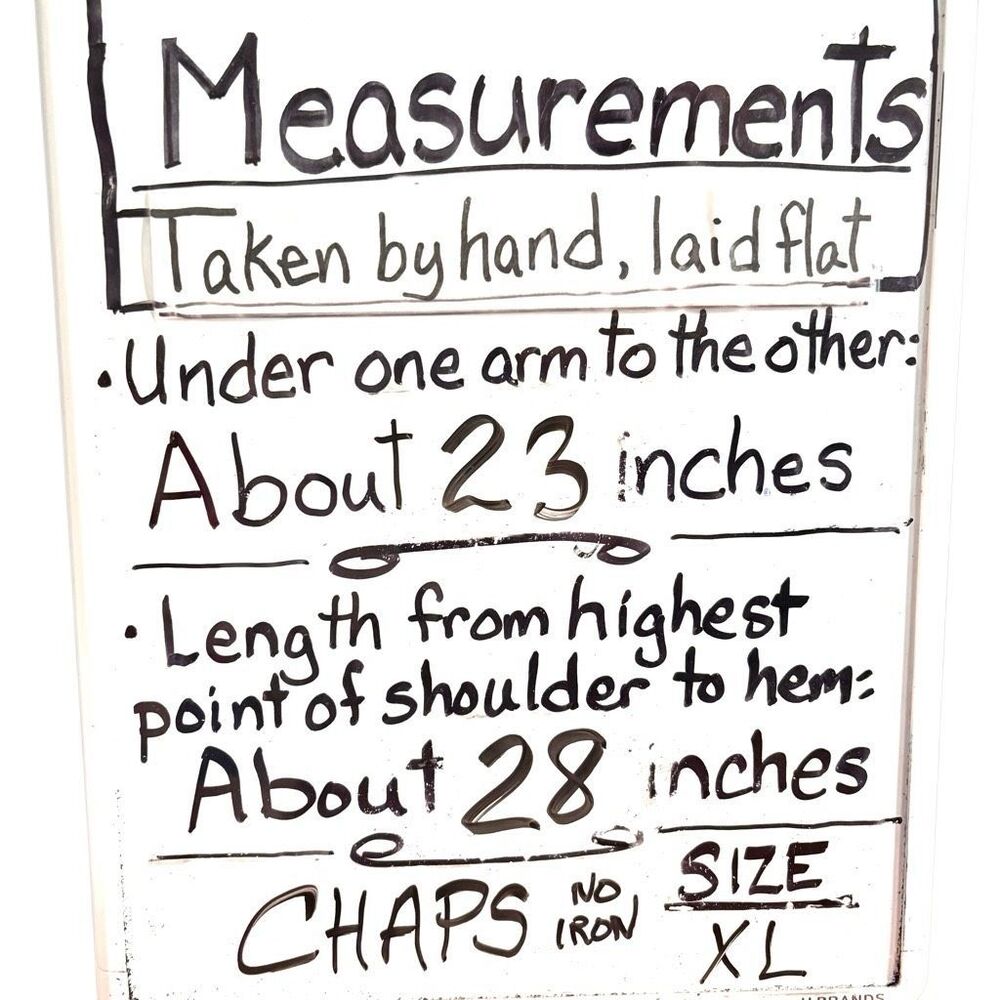 Measurements
Taken by hand, laid flat
• Under one arm to the other:
About 23 inches
• Length from highest
point of shoulder to hem:
About 28 inches
CHAPS NO IRON SIZE XL
U BRANDS